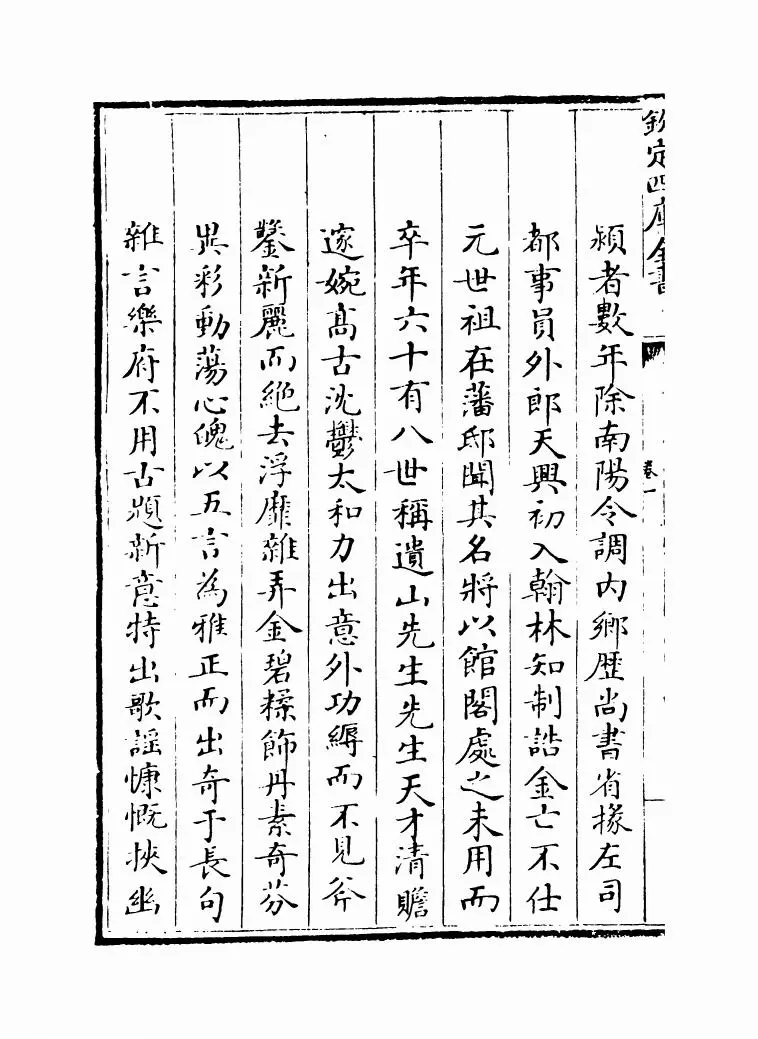 欽定四庫全書
卷一
潁者數年除南陽令調内鄉歷尚書省掾左司
都事員外郎天興初入翰林知制誥金亡不仕
元世祖在藩邸聞其名將以館閣處之未用而
卒年六十有八世稱遺山先生先生天才清贍
邃婉髙古沈鬱太和力出意外功縟而不見斧
鑿新麗而絶去浮靡雜弄金碧糅飾丹素奇芬
異彩動蕩心魄以五言為雅正而出奇于長句
雜言樂府不用古題新意特出歌謡慷慨挾幽